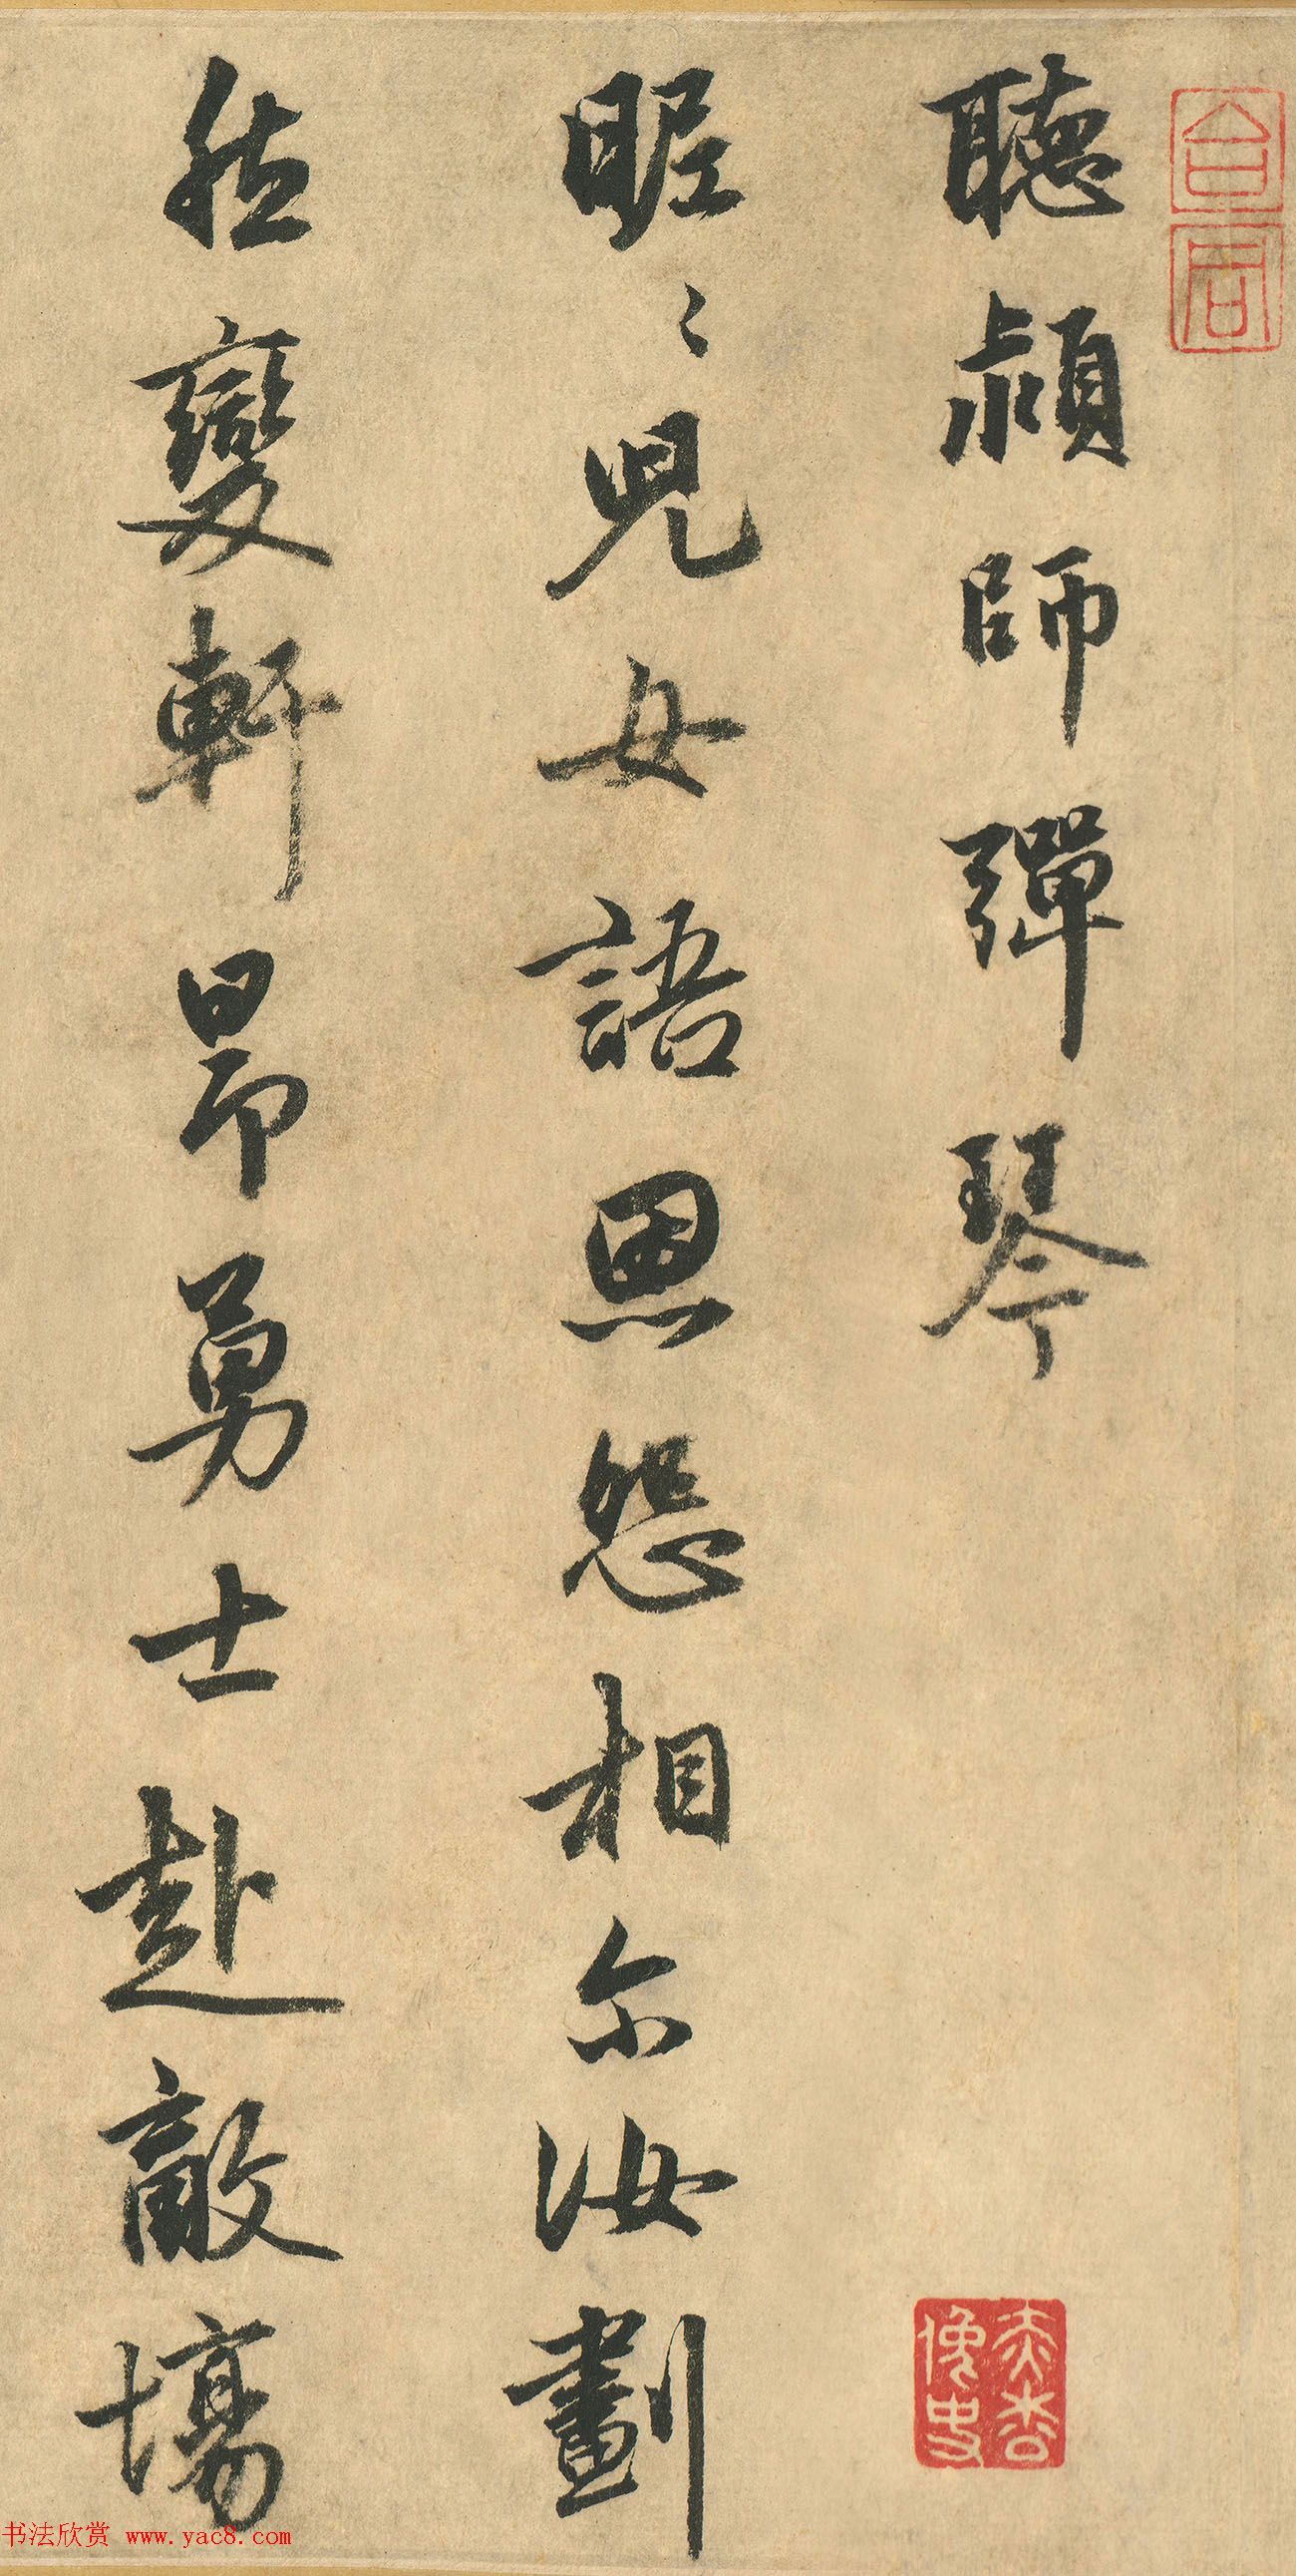 聽潁師彈琴
昵〻兒女語恩怨相尔汝劃
然變軒昂勇士赴敵場
书法欣赏 www.yac8.com